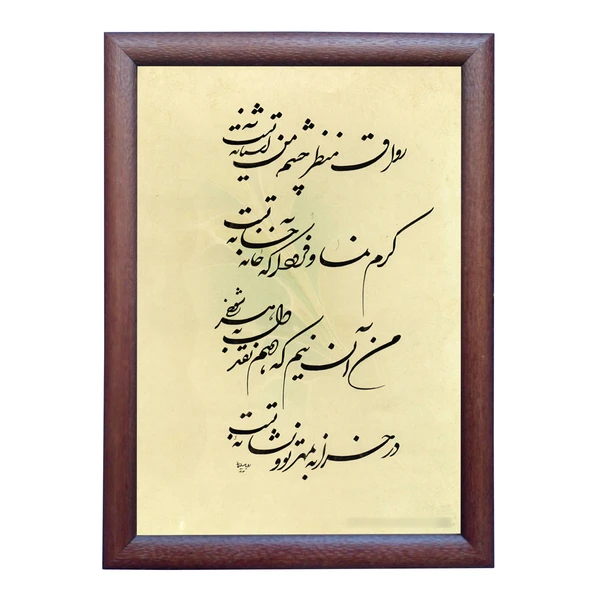 رواق منظر چشم من آستانه تست
کرم نما و فرودآ که خانه خانه تست
من آن نیم که دهم نقد دل به هر شوخی
در خزانه بمهر تو و نشانه تست